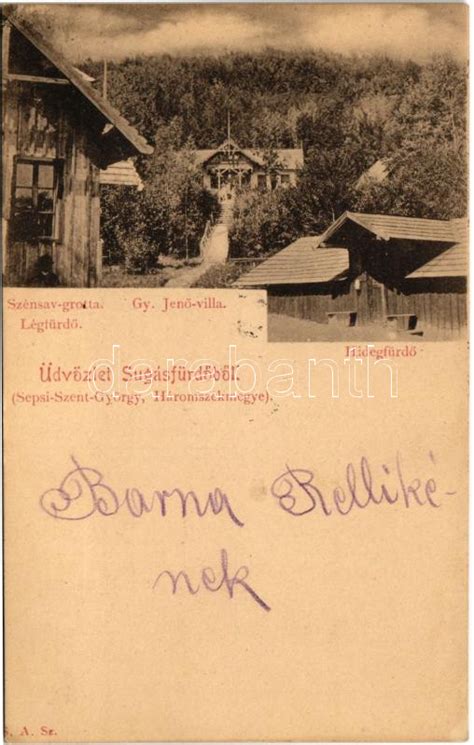 Szénsav-grotta. Gy. Jenő-villa.
Légfürdő.
Hidegfürdő
Üdvözlet Sugásfürdőből.
(Sepsi-Szent-György, Háromszékmegye).
darabanth
Barna Relliké-
nek
A. Sz.